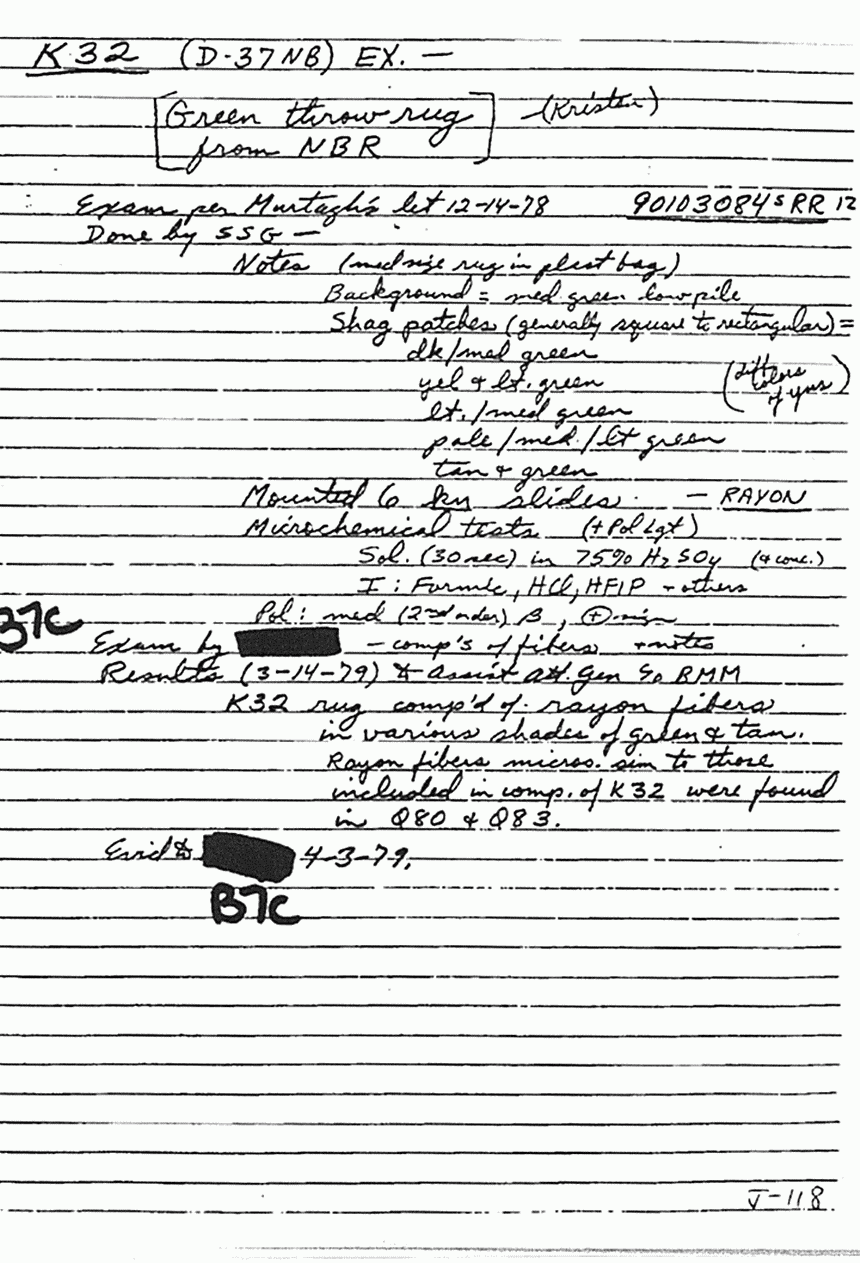 K32 (D-37NB) EX. —
[Green throw rug —(Kristen)
from NBR]
Exam per Murtagh's let 12-14-78 90103084 S RR 12
Done by SSG —
Notes (med size rug in plast bag)
Background = med green low pile
Shag patches (generally square to rectangular) =
dk/med green
yel + lt. green (diff colors of yns)
lt./med green
pale/med/lt green
tan + green
Mounted 6 kn slides. — RAYON
Microchemical tests (+ Pol Lgt)
Sol. (30 sec) in 75% H2SO4 (+ conc.)
I: Formic, HCl, HFIP + others
Pol: med (2nd order) B, (+) sign
B7C
Exam by — comp's of fibers + notes
Results (3-14-79) to Assist Att. Gen RMM
K32 rug comp'd of rayon fibers
in various shades of green & tan.
Rayon fibers micros. sim to those
included in comp. of K32 were found
in Q80 & Q83.
Evid to 4-3-79.
B7C
J-118